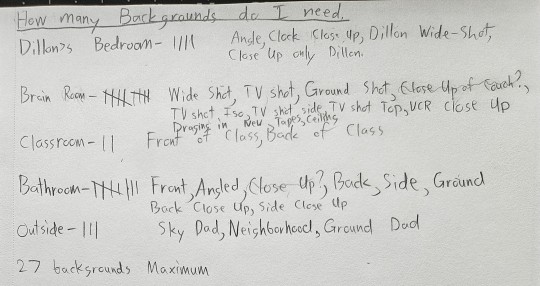 How many Backgrounds do I need.
Dillon's Bedroom - |||| Angle, Clock Close Up, Dillon Wide-Shot,
Close Up only Dillon.
Brain Room - |||| |||| Wide Shot, TV shot, Ground Shot, Close Up of Couch?,
TV shot Iso, TV shot side, TV shot Top, VCR Close Up
Drasing in New Tapes, Ceiling
Classroom - || Front of Class, Back of Class
Bathroom - |||| ||| Front, Angled, Close Up?, Back, Side, Ground
Back Close Up, Side Close Up
Outside - ||| Sky Dad, Neighborhood, Ground Dad
27 backgrounds Maximum